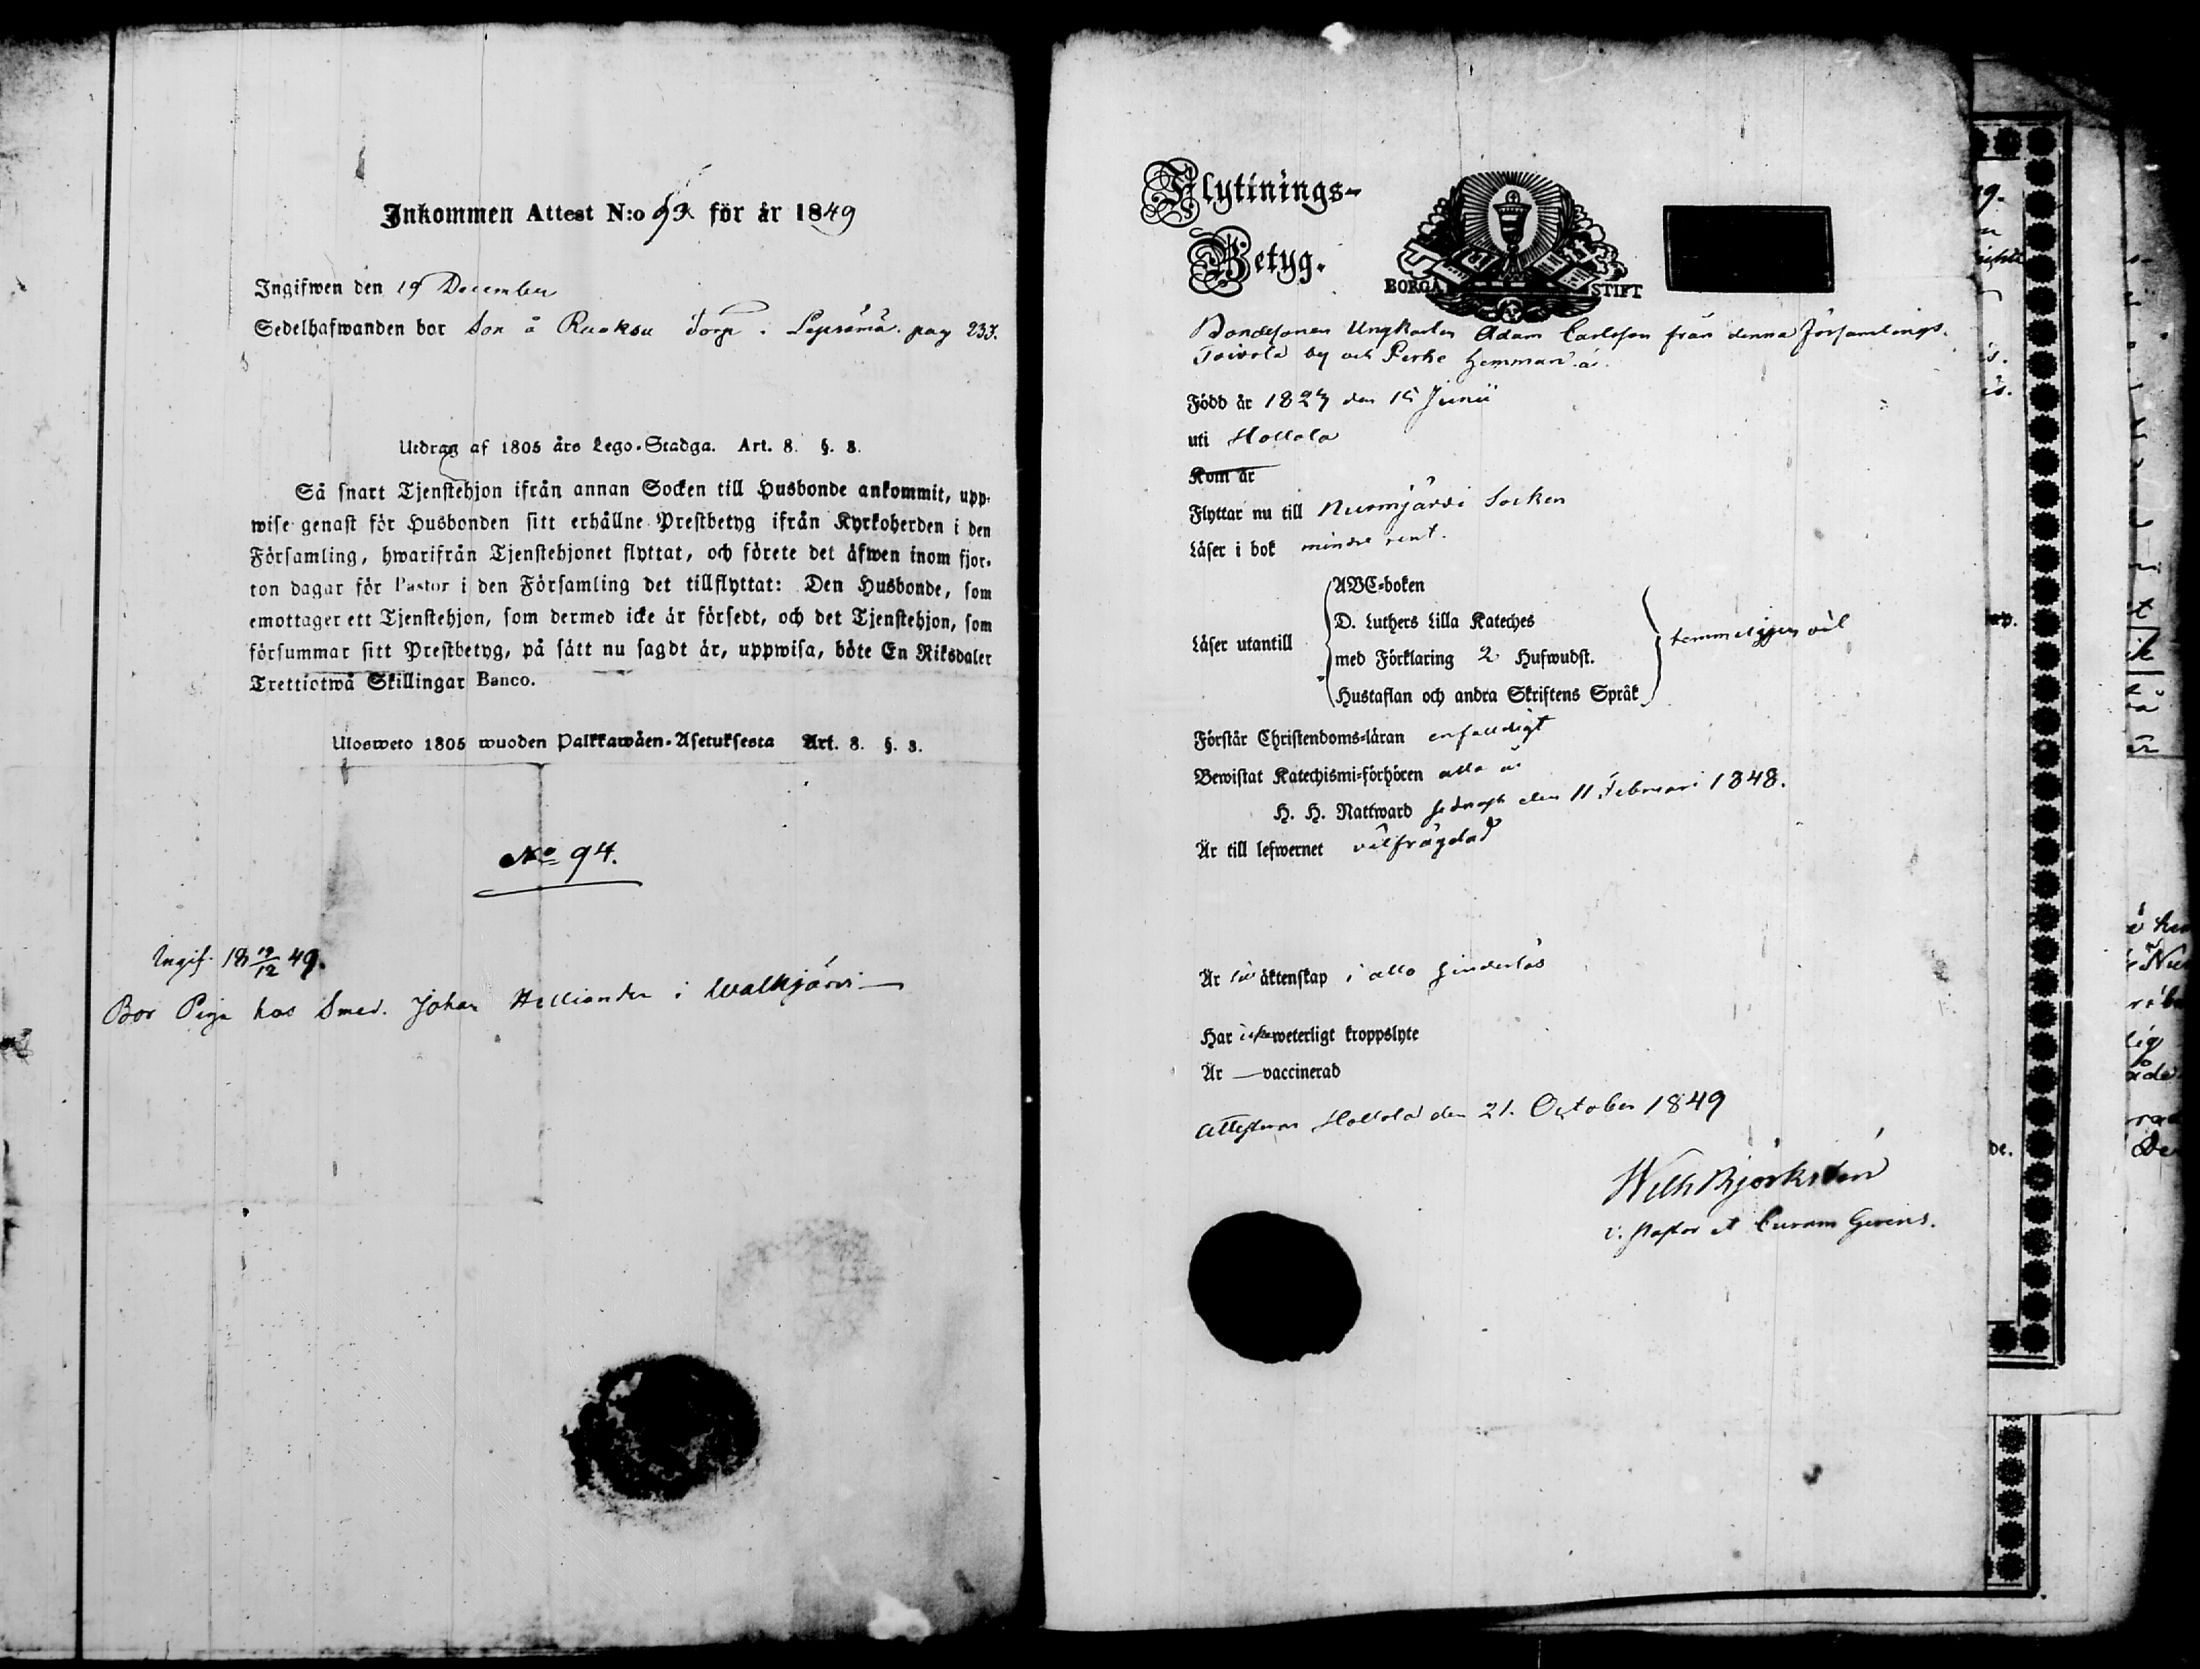 Inkommen Attest N:o 93 för år 1849
Ingifwen den 19 December
Sedelhafwanden bor son å Ruoksu Torp i Lepsämä. pag 233.
Utdrag af 1805 års Lego-Stadga. Art. 8. §. 8.
Så snart Tjenstehjon ifrån annan Socken till Husbonde ankommit, upp-
wise genast för Husbonden sitt erhållne Prestbetyg ifrån Kyrkoherden i den
Församling, hwarifrån Tjenstehjonet flyttat, och förete det äfwen inom fjor-
ton dagar för Pastor i den Församling det tillflyttat: Den Husbonde, som
emottager ett Tjenstehjon, som dermed icke är försedt, och det Tjenstehjon, som
försummar sitt Prestbetyg, på sätt nu sagdt är, uppwisa, böte En Riksdaler
Trettiotwå Skillingar Banco.
Ulosweto 1805 wuoden Palkkawäen-Asetuksesta Art. 8. §. 8.
No 94.
Ingif. 18 19/12 49.
Bor Piga hos Smed. Johan Helliander i Walkjärvi
Flyttnings-
Betyg.
BORGÅ STIFT
Bondesonen Ungkarlen Adam Carlsson från denna Församlings
Toivola by och Perke Hemman är
Född år 1827 den 15 Junii
uti Hollola
Kom år
Flyttar nu till Nurmijärvi Socken
Läser i bok mindre rent.
Läser utantill
ABC-boken
D. Luthers Lilla Kateches
med Förklaring 2 Hufwudst.
Hustaflan och andra Skriftens Språk
temmeligen väl
Förstår Christendoms-läran enfaldigt
Bewistat Katechismi-förhören alla år
H. H. Nattward sednast den 11 Februari 1848.
Är till lefwernet välfrägdad
Är till äktenskap i allo hinderlös
Har icke weterligt kroppslyte
Är — vaccinerad
Attesteras Hollola den 21. October 1849
Wilh Björkstén
v. Pastor et Curam Gerens.